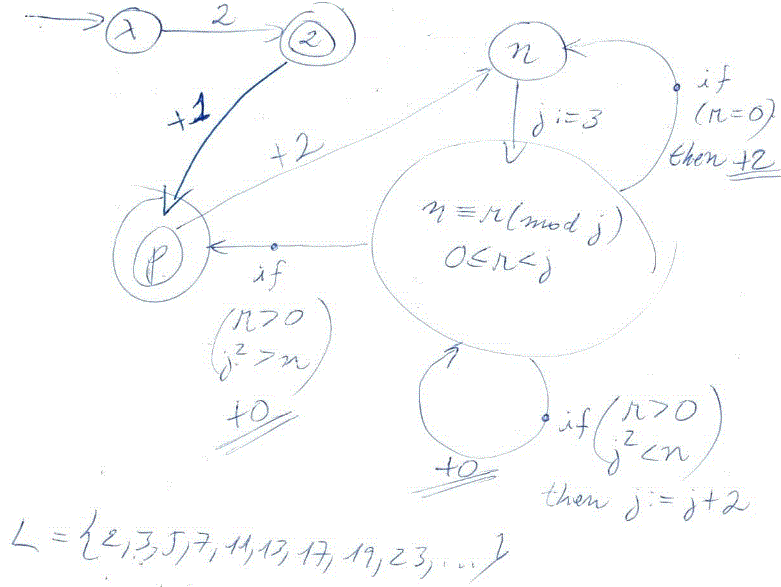 λ
2
2
+1
+2
n
j:=3
if
(r=0)
then +2
n≡r(mod j)
0≤r<j
p
if
(r>0
j²>n)
+0
+0
if (r>0
j²<n)
then j:=j+2
L={2,3,5,7,11,13,17,19,23,...}